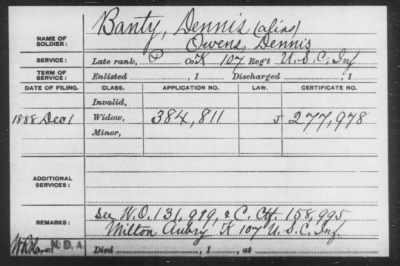 Banty, Dennis (alias)
NAME OF SOLDIER: Owens, Dennis
SERVICE: Late rank, P Co. K 107 Reg't U.S.C. Inf
TERM OF SERVICE: Enlisted , 1 Discharged , 1
DATE OF FILING. CLASS. APPLICATION NO. LAW. CERTIFICATE NO.
Invalid,
1888 Dec 1 Widow, 384,811 J 277,978
Minor,
ADDITIONAL SERVICES:
See W.O. 131,919, & C. Ctf. 158,995
REMARKS: Milton Aubry K 107 U.S.C. Inf.
N.D.A. Died , 1 , at